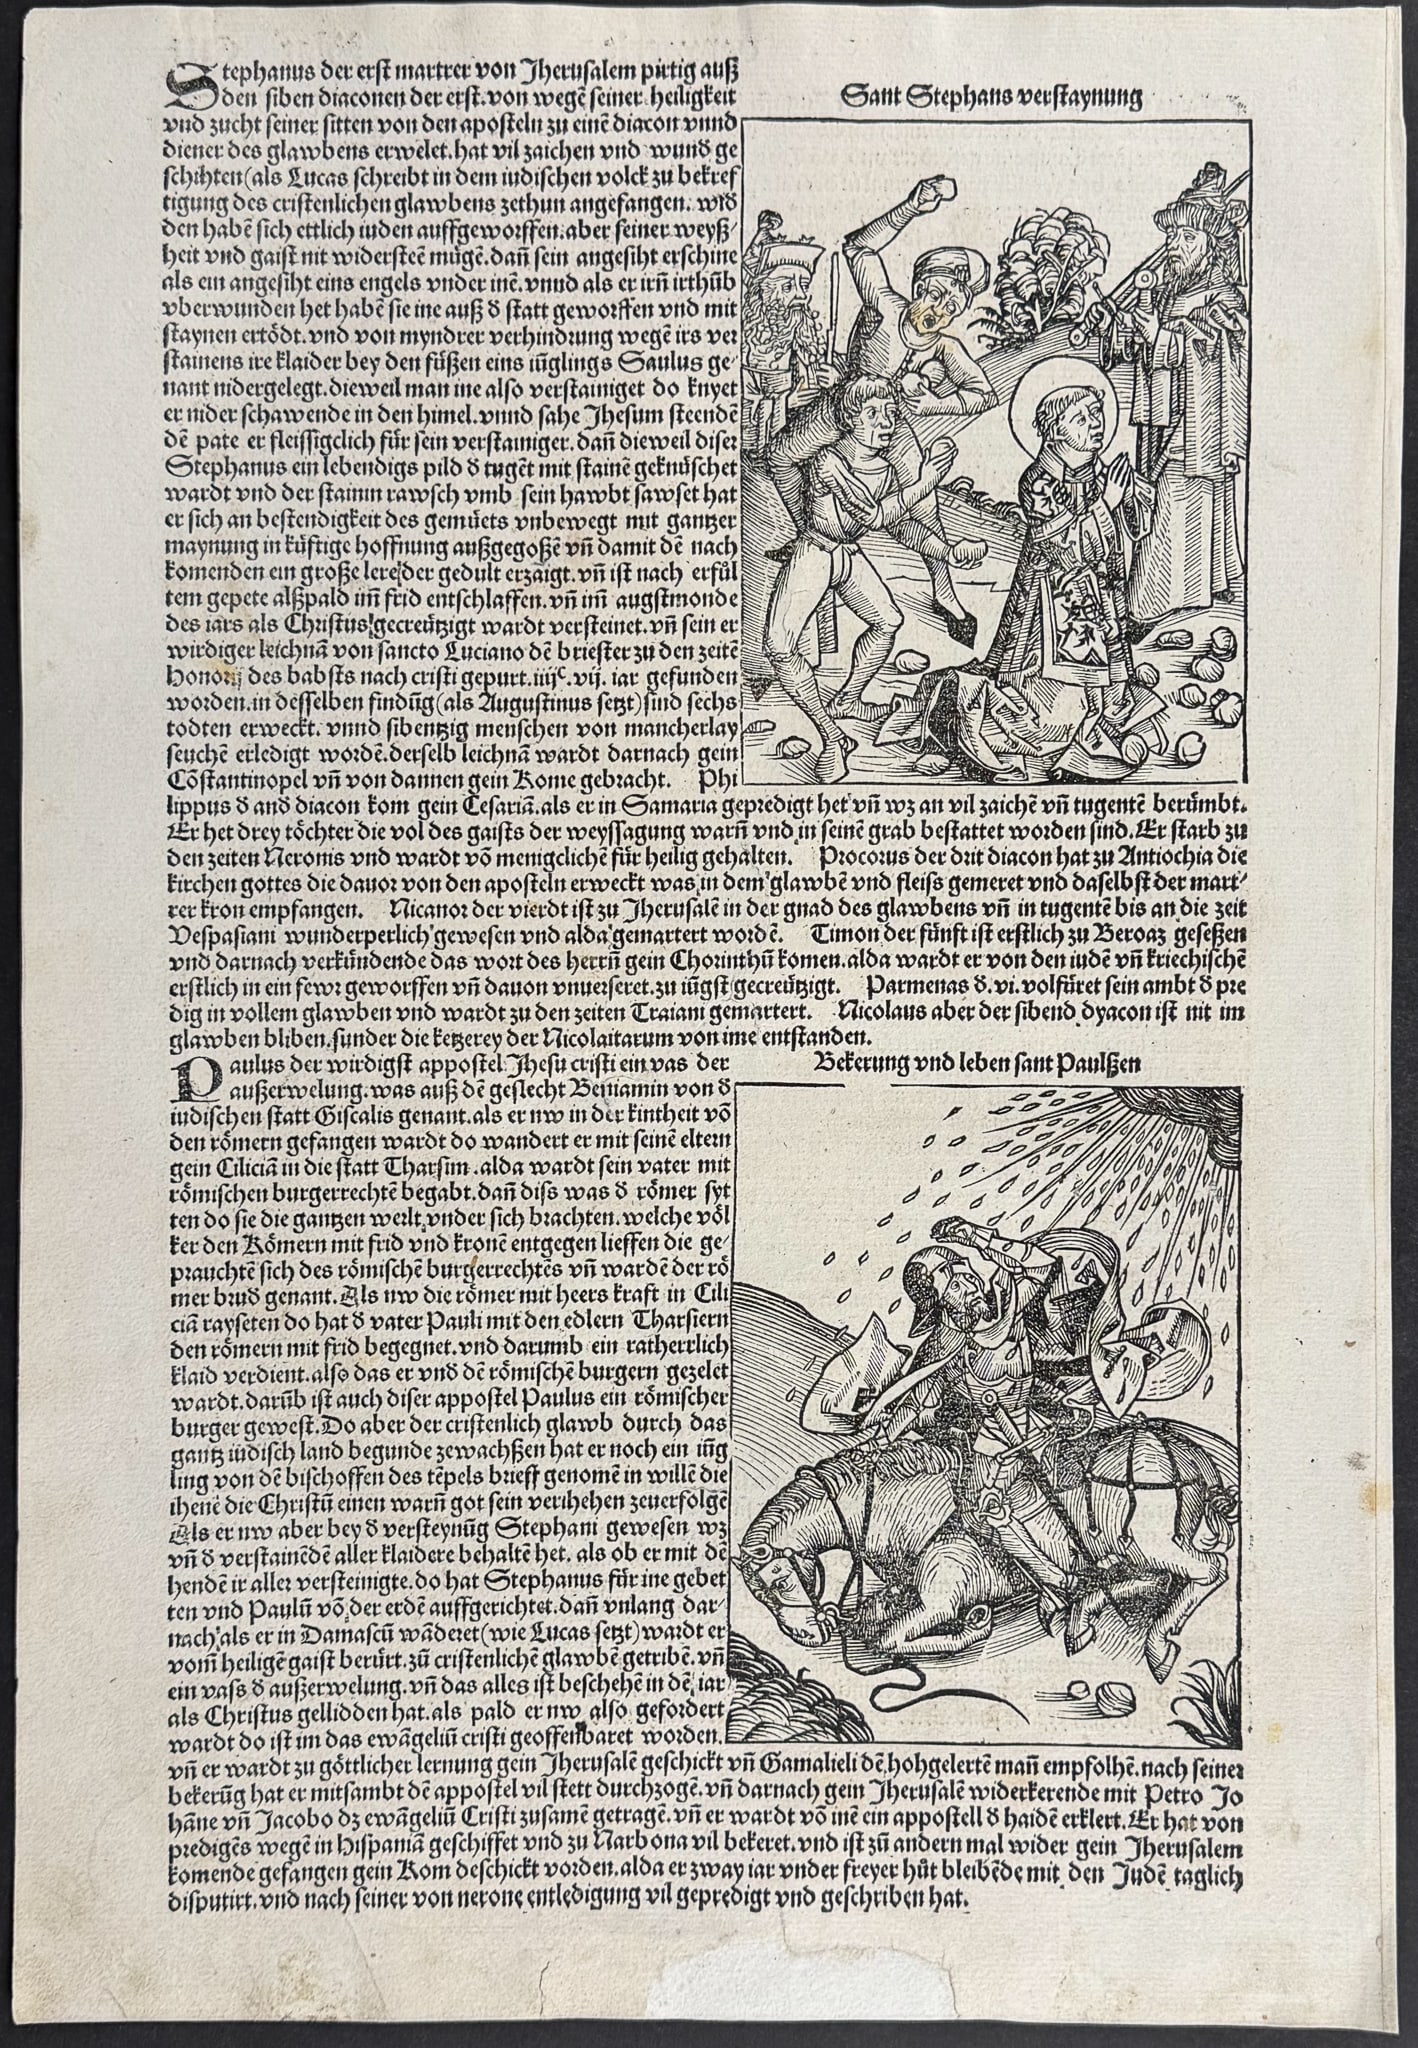 Stephanus der erst martrer von Jherusalem pürtig auß
den siben diaconen der erst. von wegē seiner heiligkeit
vnd zucht seiner sitten von den aposteln zu einē diacon vnnd
diener des glawbens erwelet. hat vil zaichen vnd wund ge
schihten (als Lucas schreibt in dem iudischen volck zu bekref
tigung des cristenlichen glawbens zethun angefangen. wid
den habē sich ettlich iuden auffgeworffen. aber seiner weyß-
heit vnd gaist nit widersteē mügē. dañ sein angesiht erschine
als ein angesiht eins engels vnder inē. vnnd als er irñ irthūb
vberwunden het habē sie ine auß d statt geworffen vnd mit
staynen ertödt. vnd von myndrer verhindrung wegē irs ver
stainens ire klaider bey den füßen eins iūglings Saulus ge-
nant nidergelegt. dieweil man ine also verstainiget do knyet
er nider schawende in den himel. vnnd sahe Jhesum steendē
dē pate er fleissigclich für sein verstainiger. dañ dieweil diser
Stephanus ein lebendigs pild d tugēt mit stainē geknüschet
wardt vnd der stainin rawsch vmb sein hawbt sawset hat
er sich an bestendigkeit des gemüets vnbewegt mit gantzer
maynung in küftige hoffnung außgegoßē vñ damit dē nach
komenden ein große lere der gedult erzaigt. vñ ist nach erfül
tem gepete alßpald im̄ frid entschlaffen. vñ im̄ augstmonde
des iars als Christus gecreützigt wardt versteinet. vñ sein er
wirdiger leichnā von sancto Luciano dē briester zu den zeitē
Honorij des babsts nach cristi gepurt. iiijᶜ. vij. iar gefunden
worden. in desselben findūg (als Augustinus setzt) sind sechs
todten erweckt. vnnd sibentzig menschen von mancherlay
seuchē erledigt wordē. derselb leichnā wardt darnach gein
Cōstantinopel vñ von dannen gein Rome gebracht. Phi
Sant Stephans verstaynung
lippus d and diacon kom gein Cesariā. als er in Samaria gepredigt het vñ wz an vil zaichē vñ tugentē berümbt.
Er het drey töchter die vol des gaists der weyssagung warñ vnd in seinē grab bestattet worden sind. Er starb zu
den zeiten Neronis vnd wardt vō menigclichē für heilig gehalten. Procorus der drit diacon hat zu Antiochia die
kirchen gottes die dauor von den aposteln erweckt was in dem glawbē vnd fleiss gemeret vnd daselbst der mart-
rer kron empfangen. Nicanor der vierdt ist zu Jherusalē in der gnad des glawbens vñ in tugentē bis an die zeit
Vespasiani wunderperlich gewesen vnd alda gemartert wordē. Timon der fünft ist erstlich zu Beroaz geseßen
vnd darnach verkündende das wort des herrñ gein Chorinthū komen. alda wardt er von den iudē vñ kriechischē
erstlich in ein fewr geworffen vñ dauon vnuerseret. zu iūgst gecreützigt. Parmenas d. vi. volfüret sein ambt d pre
dig in vollem glawben vnd wardt zu den zeiten Traiani gemartert. Nicolaus aber der sibend dyacon ist nit im
glawben bliben. sunder die ketzerey der Nicolaitarum von ime entstanden.
Bekerung vnd leben sant Paulßen
Paulus der wirdigst appostel Jhesu cristi ein vas der
außerwelung. was auß dē geslecht Beniamin von d
iudischen statt Giscalis genant. als er nw in der kintheit vō
den römern gefangen wardt do wandert er mit seinē eltern
gein Ciliciā in die statt Tharsim. alda wardt sein vater mit
römischen burgerrechtē begabt. dañ diss was d römer syt
ten do sie die gantzen werlt vnder sich brachten. welche völ
ker den Römern mit frid vnd kronē entgegen lieffen die ge-
prauchtē sich des römischē burgerrechtēs vñ wardē der rö
mer brud genant. Als nw die römer mit heers kraft in Cili
ciā rayseten do hat d vater Pauli mit den edlern Tharsiern
den römern mit frid begegnet. vnd darumb ein ratherrlich
klaid verdient. also das er vnd dē römischē burgern gezelet
wardt. darūb ist auch diser appostel Paulus ein römischer
burger gewest. Do aber der cristenlich glawb durch das
gantz iüdisch land begunde zewachßen hat er noch ein iūg
ling von dē bischoffen des tēpels brieff genomē in willē die
ihenē die Christū einen warñ got sein verihehen zeuerfolgē
Als er nw aber bey d versteynūg Stephani gewesen wz
vñ d verstainēdē aller klaidere behaltē het. als ob er mit dē
hendē ir aller versteinigte. do hat Stephanus für ine gebet
ten vnd Paulū vō der erdē auffgerichtet. dañ vnlang dar-
nach als er in Damascū wāderet (wie Lucas setzt) wardt er
vom̄ heiligē gaist berürt. zū cristenlichē glawbē getribē. vñ
ein vass d außerwelung. vñ das alles ist beschehē in dē iar
als Christus gellidden hat. als pald er nw also gefordert
wardt do ist im das ewāgeliū cristi geoffenbaret worden.
vñ er wardt zu göttlicher lernung gein Jherusalē geschickt vñ Gamalieli dē hohgelertē mañ empfolhē. nach seiner
bekerūg hat er mitsambt dē appostel vil stett durchzogē. vñ darnach gein Jherusalē widerkerende mit Petro Jo
hāne vñ Jacobo dz ewāgeliū Cristi zusamē getragē. vñ er wardt vō inē ein appostell d haidē erklert. Er hat von
predigēs wegē in Hispaniā geschiffet vnd zu Narbona vil bekeret. vnd ist zū andern mal wider gein Jherusalem
komende gefangen gein Rom deschickt vorden. alda er zway iar vnder freyer hůt bleibēde mit den Judē taglich
disputirt. vnd nach seiner von nerone entledigung vil gepredigt vnd geschriben hat.